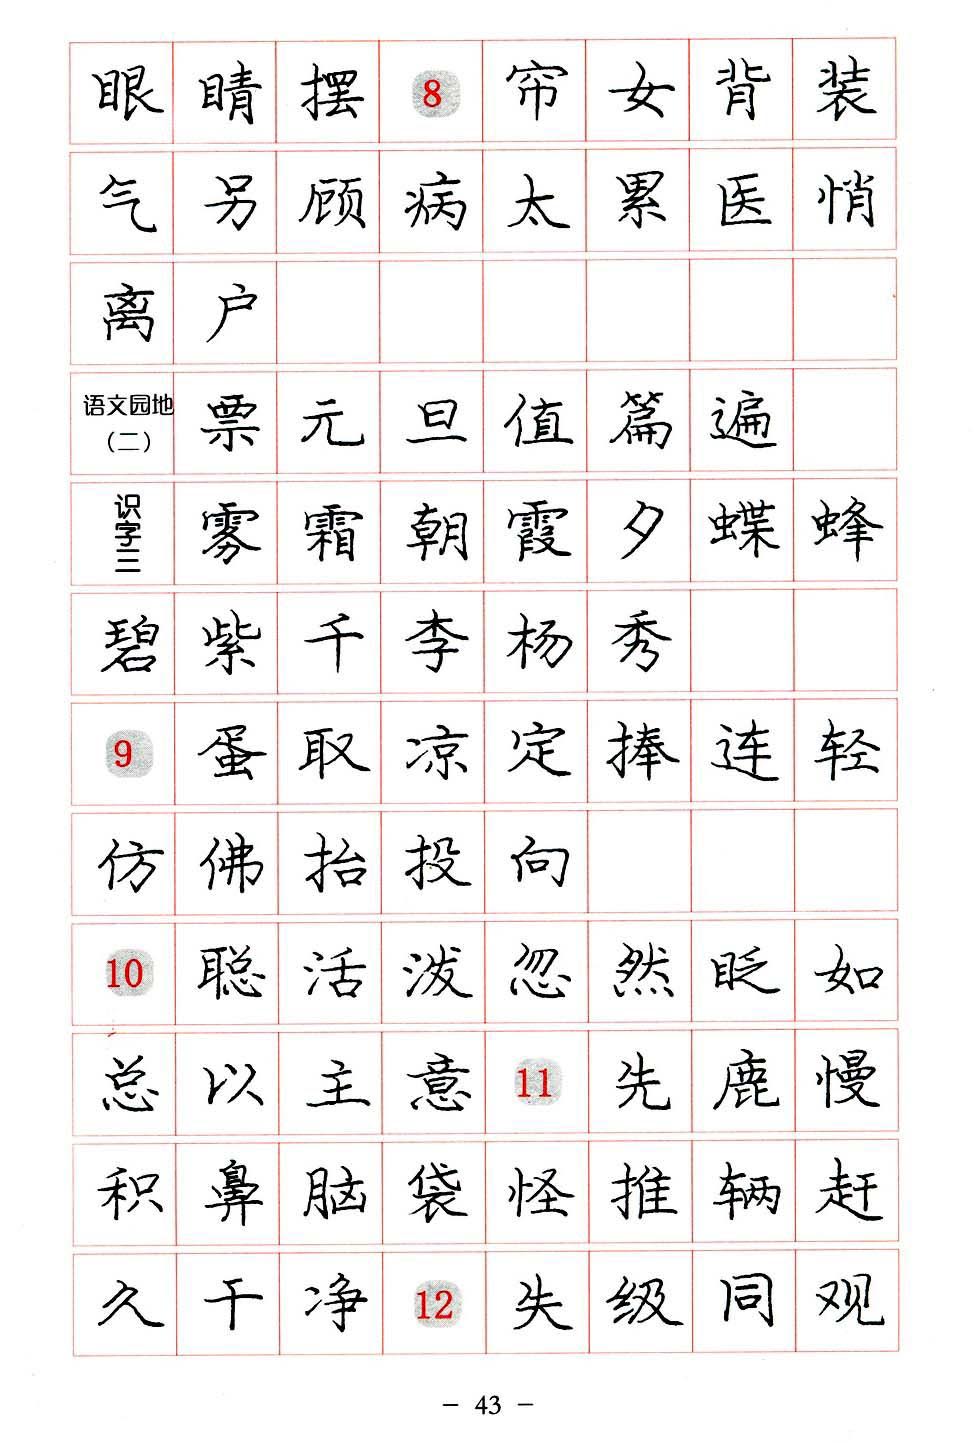 眼 睛 摆 8 帘 女 背 装
气 另 顾 病 太 累 医 悄
离 户
语文园地（二） 票 元 旦 值 篇 遍
识字三 雾 霜 朝 霞 夕 蝶 蜂
碧 紫 千 李 杨 秀
9 蛋 取 凉 定 捧 连 轻
仿 佛 抬 投 向
10 聪 活 泼 忽 然 眨 如
总 以 主 意 11 先 鹿 慢
积 鼻 脑 袋 怪 推 辆 赶
久 干 净 12 失 级 同 观
– 43 –